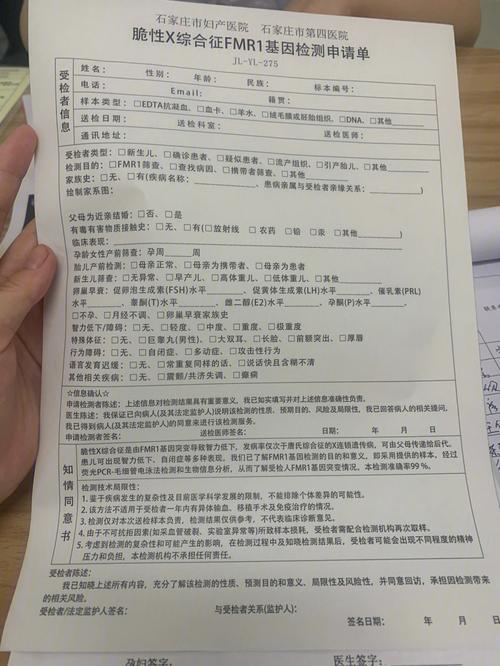 石家庄市妇产医院 石家庄市第四医院
脆性X综合征FMR1基因检测申请单
JL-YL-275
受检者信息
姓名： 性别： 年龄： 民族： 标本编号：
电话： Email： 籍贯：
样本类型：□EDTA抗凝血、□血卡、□羊水、□绒毛膜或胚胎组织、□DNA、□其他
送检日期： 送检科室： 送检医师：
通讯地址：
受检者类型：□新生儿、□确诊患者、□疑似患者、□流产组织、□引产胎儿、□其他
检测目的：□FMR1筛查、□查找病因、□携带者筛查、□其他
家族史：□无、□有(疾病名称： 、患病亲属与受检者亲缘关系： )
绘制家系图：
父母为近亲结婚：□否、□是
有毒有害物质接触史：□无、□有(□放射线 □农药 □铅 □汞 □其他 )
临床表现：
孕龄女性产前筛查：孕周 周
胎儿产前检测：□母亲正常、□母亲为携带者、□母亲为患者
新生儿筛查：□无异常、□早产儿、□高体重儿、□低体重儿、□其他
卵巢早衰：促卵泡生成素(FSH)水平 、促黄体生成素(LH)水平 、催乳素(PRL)
水平 、睾酮(T)水平 、雌二醇(E2)水平 、孕酮(P)水平 、
□不孕、□月经不调、□卵巢早衰家族史
智力低下/障碍：□无、□轻度、□中度、□重度、□极重度
特殊体征：□无、□巨睾丸(男性)、□大双耳、□长脸、□前额突出、□厚唇
行为障碍：□无、□自闭症、□多动症、□攻击性行为
语言发育迟缓：□无、□常重复同样的话、□说话快且含糊不清
其他相关疾病：□无、□震颤/共济失调、□癫痫
☆信息确认☆
申请检测者陈述：上面信息对检测结果具有重要意义，我已如实填写并对上述信息准确性负责。
医生陈述：我保证已向病人(及其法定监护人)说明该检测的性质、预期目的、风险及局限性，我已回答病人的相关提问，
我已得到病人(及其法定监护人)的同意来进行该检测服务。
申请检测者签名： 送检医师签名： 年 月 日
知情同意书
脆性X综合征是由FMR1基因突变导致智力低下，发病率仅次于唐氏综合征的X连锁遗传病，可由父母传递给后代。
患儿可出现智力低下、自闭症等多种表现，我们已了解FMR1基因检测的目的和意义，即采用提供的样本，经过
荧光PCR-毛细管电泳法检测和生物信息分析，从而了解受检人FMR1基因突变情况。本检测准确率99 %。
检测技术局限性：
1. 鉴于疾病发生的复杂性及目前医学科学发展的限制，不能排除个体差异的可能性。
2. 该方法不适用于受检者一年内有异体输血、移植手术及免疫治疗的情况。
3. 检测仅对本次送检样本负责，检测结果仅供参考，不代表临床诊断意见。
4. 由于不可抗拒因素(如采血管破裂、实验室异常等)所致样本损耗，受检者需配合检测机构再次取样。
5. 考虑到检测的复杂性和可能产生的影响，在检测过程中及知晓检测结果后，受检者可能会出现不同程度的精神
压力和负担，本检测机构不承担任何责任。
受检者陈述：
我已知晓上述所有内容，充分了解该检测的性质、预测目的和意义、局限性及风险性，并同意回访，承担因检测带来
的相关风险。
受检者/法定监护人签名： 与受检者关系(监护人)：
签名日期： 年 月 日
孕妇签字： 医生签字：